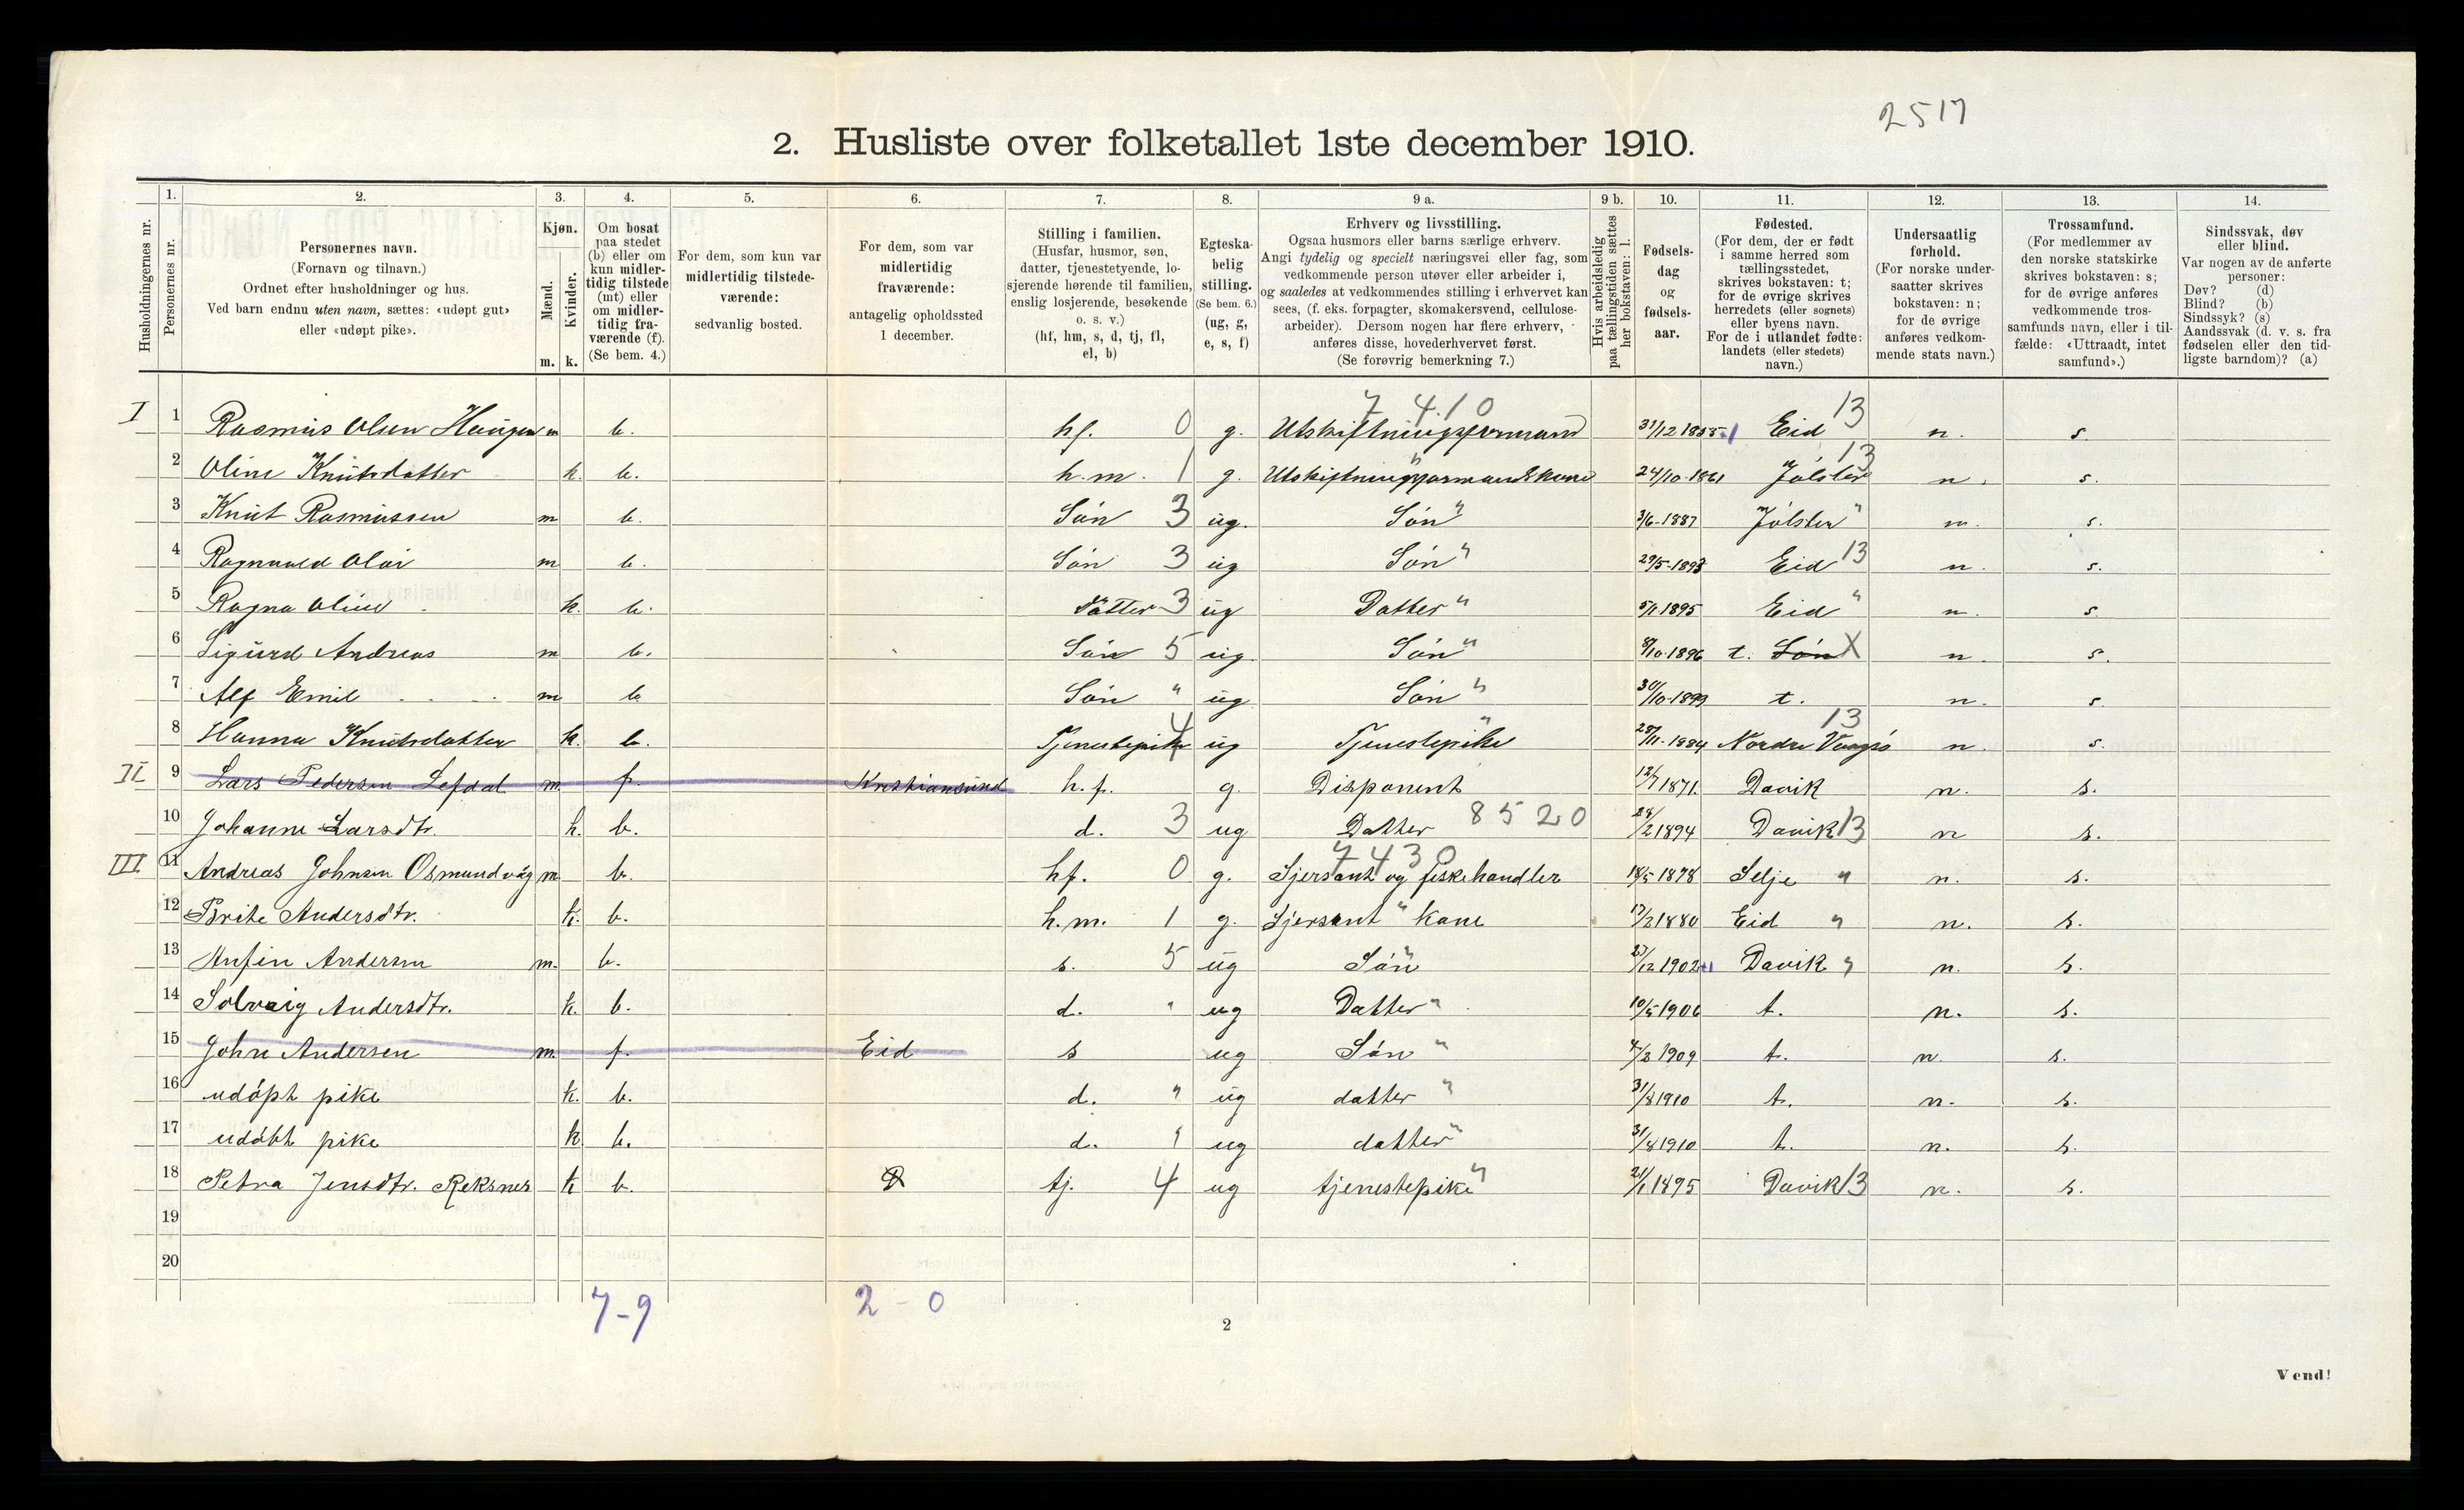 2517
2. Husliste over folketallet 1ste december 1910.
Husholdningernes nr.
1. Personernes nr.
2. Personernes navn.
(Fornavn og tilnavn.)
Ordnet efter husholdninger og hus.
Ved barn endnu uten navn, sættes: «udøpt gut»
eller «udøpt pike».
3. Kjøn.
Mænd. Kvinder.
m. k.
4. Om bosat
paa stedet
(b) eller om
kun midler-
tidig tilstede
(mt) eller
om midler-
tidig fra-
værende (f).
(Se bem. 4.)
5. For dem, som kun var
midlertidig tilstede-
værende:
sedvanlig bosted.
6. For dem, som var
midlertidig
fraværende:
antagelig opholdssted
1 december.
7. Stilling i familien.
(Husfar, husmor, søn,
datter, tjenestetyende, lo-
sjerende hørende til familien,
enslig losjerende, besøkende
o. s. v.)
(hf, hm, s, d, tj, fl,
el, b)
8. Egteska-
belig
stilling.
(Se bem. 6.)
(ug, g,
e, s, f)
9 a. Erhverv og livsstilling.
Ogsaa husmors eller barns særlige erhverv.
Angi tydelig og specielt næringsvei eller fag, som
vedkommende person utøver eller arbeider i,
og saaledes at vedkommendes stilling i erhvervet kan
sees, (f. eks. forpagter, skomakersvend, cellulose-
arbeider). Dersom nogen har flere erhverv,
anføres disse, hovederhvervet først.
(Se forøvrig bemerkning 7.)
9 b. Hvis arbeidsledig
paa tællingstiden sættes
her bokstaven: l.
10. Fødsels-
dag
og
fødsels-
aar.
11. Fødested.
(For dem, der er født
i samme herred som
tællingsstedet,
skrives bokstaven: t;
for de øvrige skrives
herredets (eller sognets)
eller byens navn.
For de i utlandet fødte:
landets (eller stedets)
navn.)
12. Undersaatlig
forhold.
(For norske under-
saatter skrives
bokstaven: n;
for de øvrige
anføres vedkom-
mende stats navn.)
13. Trossamfund.
(For medlemmer av
den norske statskirke
skrives bokstaven: s;
for de øvrige anføres
vedkommende tros-
samfunds navn, eller i til-
fælde: «Uttraadt, intet
samfund».)
14. Sindssvak, døv
eller blind.
Var nogen av de anførte
personer:
Døv? (d)
Blind? (b)
Sindssyk? (s)
Aandssvak (d. v. s. fra
fødselen eller den tid-
ligste barndom)? (a)
7 4.10 13
I 1 Rasmus Olsen Haugen m b. hf. 0 g. Utskiftningsformand 31/12 1855 Eid n. s.
2 Oline Knutsdatter k. b. h.m. 1 g. Utskiftningsformandskone 24/10-1861 Jølster 13 n. s.
3 Knut Rasmussen m b. Søn 3 ug. Søn " 3/6-1887 Jølster " n. s.
4 Ragnvald Olai m b. Søn 3 ug Søn " 29/5-1893 Eid 13 n. s.
5 Ragna Oline k. b. datter 3 ug Datter " 5/1 1895 Eid " n. s.
6 Sigurd Andreas m b. Søn 5 ug. Søn " 8/10-1896 t. Søn X n. s.
7 Alf Emil m b Søn " ug Søn " 30/10-1899 t. n. s.
8 Hanna Knutsdatter k. b. Tjenestepike 4 ug Tjenestepike " 28/11-1884 Nordre Vaagsø 13 n. s.
II 9 Lars Pedersen Lefdal m. f. Kristiansund h.f. g. Disponent 12/7 1871. Davik n. s.
10 Johanne Larsdtr. k. b. d. 3 ug Datter 8520 28/2 1894 Davik 13 n s.
III 11 Andreas Johnsen Osmundvåg m. b. hf. 0 g. Sjersant og fiskehandler 7430 18/5 1878 Selje " n. s.
12 Brite Andersdtr. k. b. h.m. 1 g. Sjersant " kone 17/2 1880 Eid " n. s.
13 Anfin Andersen m. b. s. 5 ug Søn " 27/12 1902 Davik " n. s.
14 Solveig Andersdtr. k. b. d. " ug Datter " 10/5 1906 t. n. s.
15 John Andersen m. f. Eid s ug Søn " 4/3 1909 t. n. s.
16 udøpt pike k. b. d. " ug datter " 31/8 1910 t. n. s.
17 udøbt pike k b. d. " ug datter " 31/8 1910 t. n. s.
18 Petra Jensdtr. Reksnes k b. tj. 4 ug tjenestepike " 21/1 1895 Davik 13 n. s.
19
20
7-9 2-0
2
Vend!